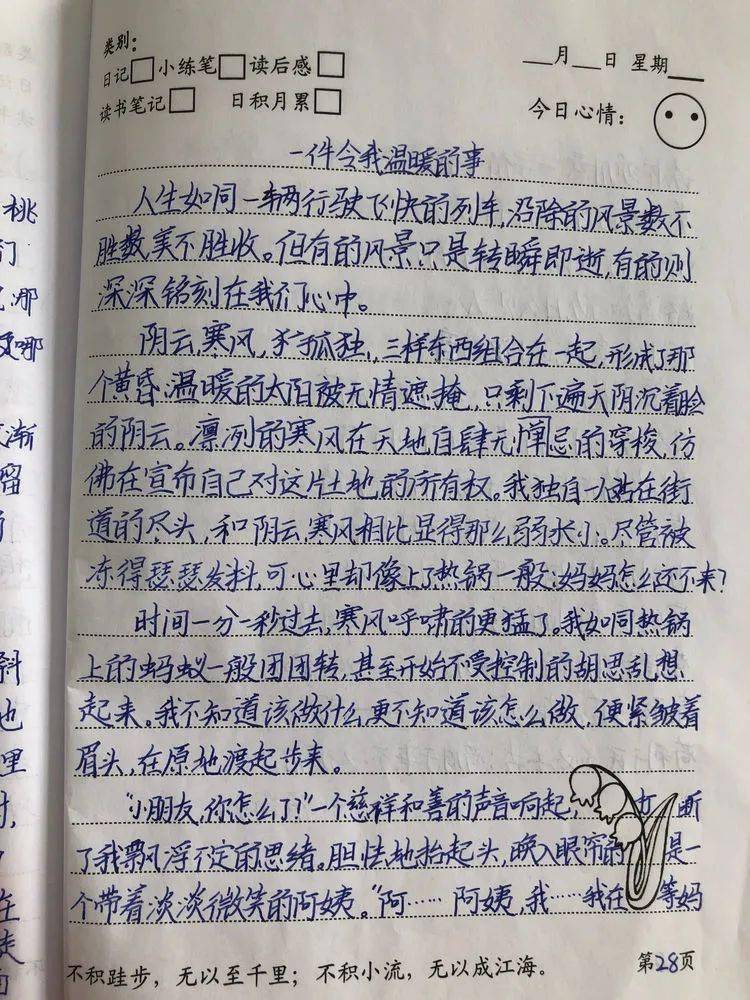 类别:
日记□ 小练笔□ 读后感□ __月__日 星期__
读书笔记□ 日积月累□ 今日心情:
一件令我温暖的事
人生如同一辆行驶飞快的列车,沿除的风景数不
胜数,美不胜收。但有的风景只是转瞬即逝,有的则
深深铭刻在我们心中。
阴云,寒风,孤独,三样东西组合在一起,形成了那
个黄昏:温暖的太阳被无情遮掩,只剩下遍天阴沉着脸
的阴云。凛冽的寒风在天地自肆无惮忌的穿梭,仿
佛在宣布自己对这片土地的所有权。我独自一人站在街
道的尽头,和阴云,寒风相比显得那么弱小。尽管被
冻得瑟瑟发抖,可心里却像上了热锅一般:妈妈怎么还不来?
时间一分一秒过去,寒风呼啸的更猛了。我如同热锅
上的蚂蚁一般团团转,甚至开始不受控制的胡思乱想
起来。我不知道该做什么,更不知道该怎么做,便紧皱着
眉头,在原地渡起步来。
“小朋友,你怎么了?”一个慈祥和善的声音响起, 打断
了我飘浮不定的思绪。胆怯地抬起头,映入眼帘的 是一
个带着淡淡微笑的阿姨。“阿……阿姨,我……我在 等妈
不积跬步,无以至千里;不积小流,无以成江海。 第28页
桃
那
哪
渐
留
斜
也
里
时,
在